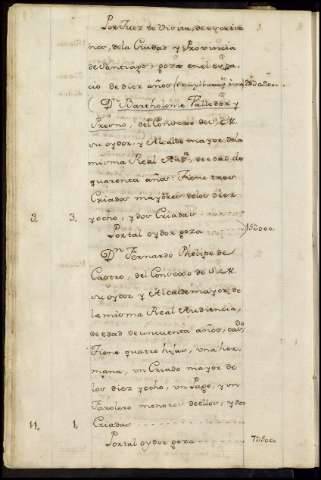 Por Juez de
rios, dela Ciudad y Provincia
de Santiago, goza en el espa
cio de diez años
Dn. Bartholome Valledor y
Presno, del Consejo de S. M.
su oydor, y Alcalde mayor dela
misma Real Auda. de edad de
quarenta años: Tiene tres
Criados mayores delos diez
3. 3. yocho, y dos Criadas
Portal oydor goza 15000.
Dn. Fernando Phelipe de
Castro, del Consejo de S. M.
su oydor y Alcalde mayor de
la misma Real Audiencia,
de edad de cinquenta años,
Tiene quatro hijas, una her
mana, un Criado mayor de
los diez yocho, un Page, y un
menores de ellos, y dos
11. 1. Criadas
Portal oydor goza